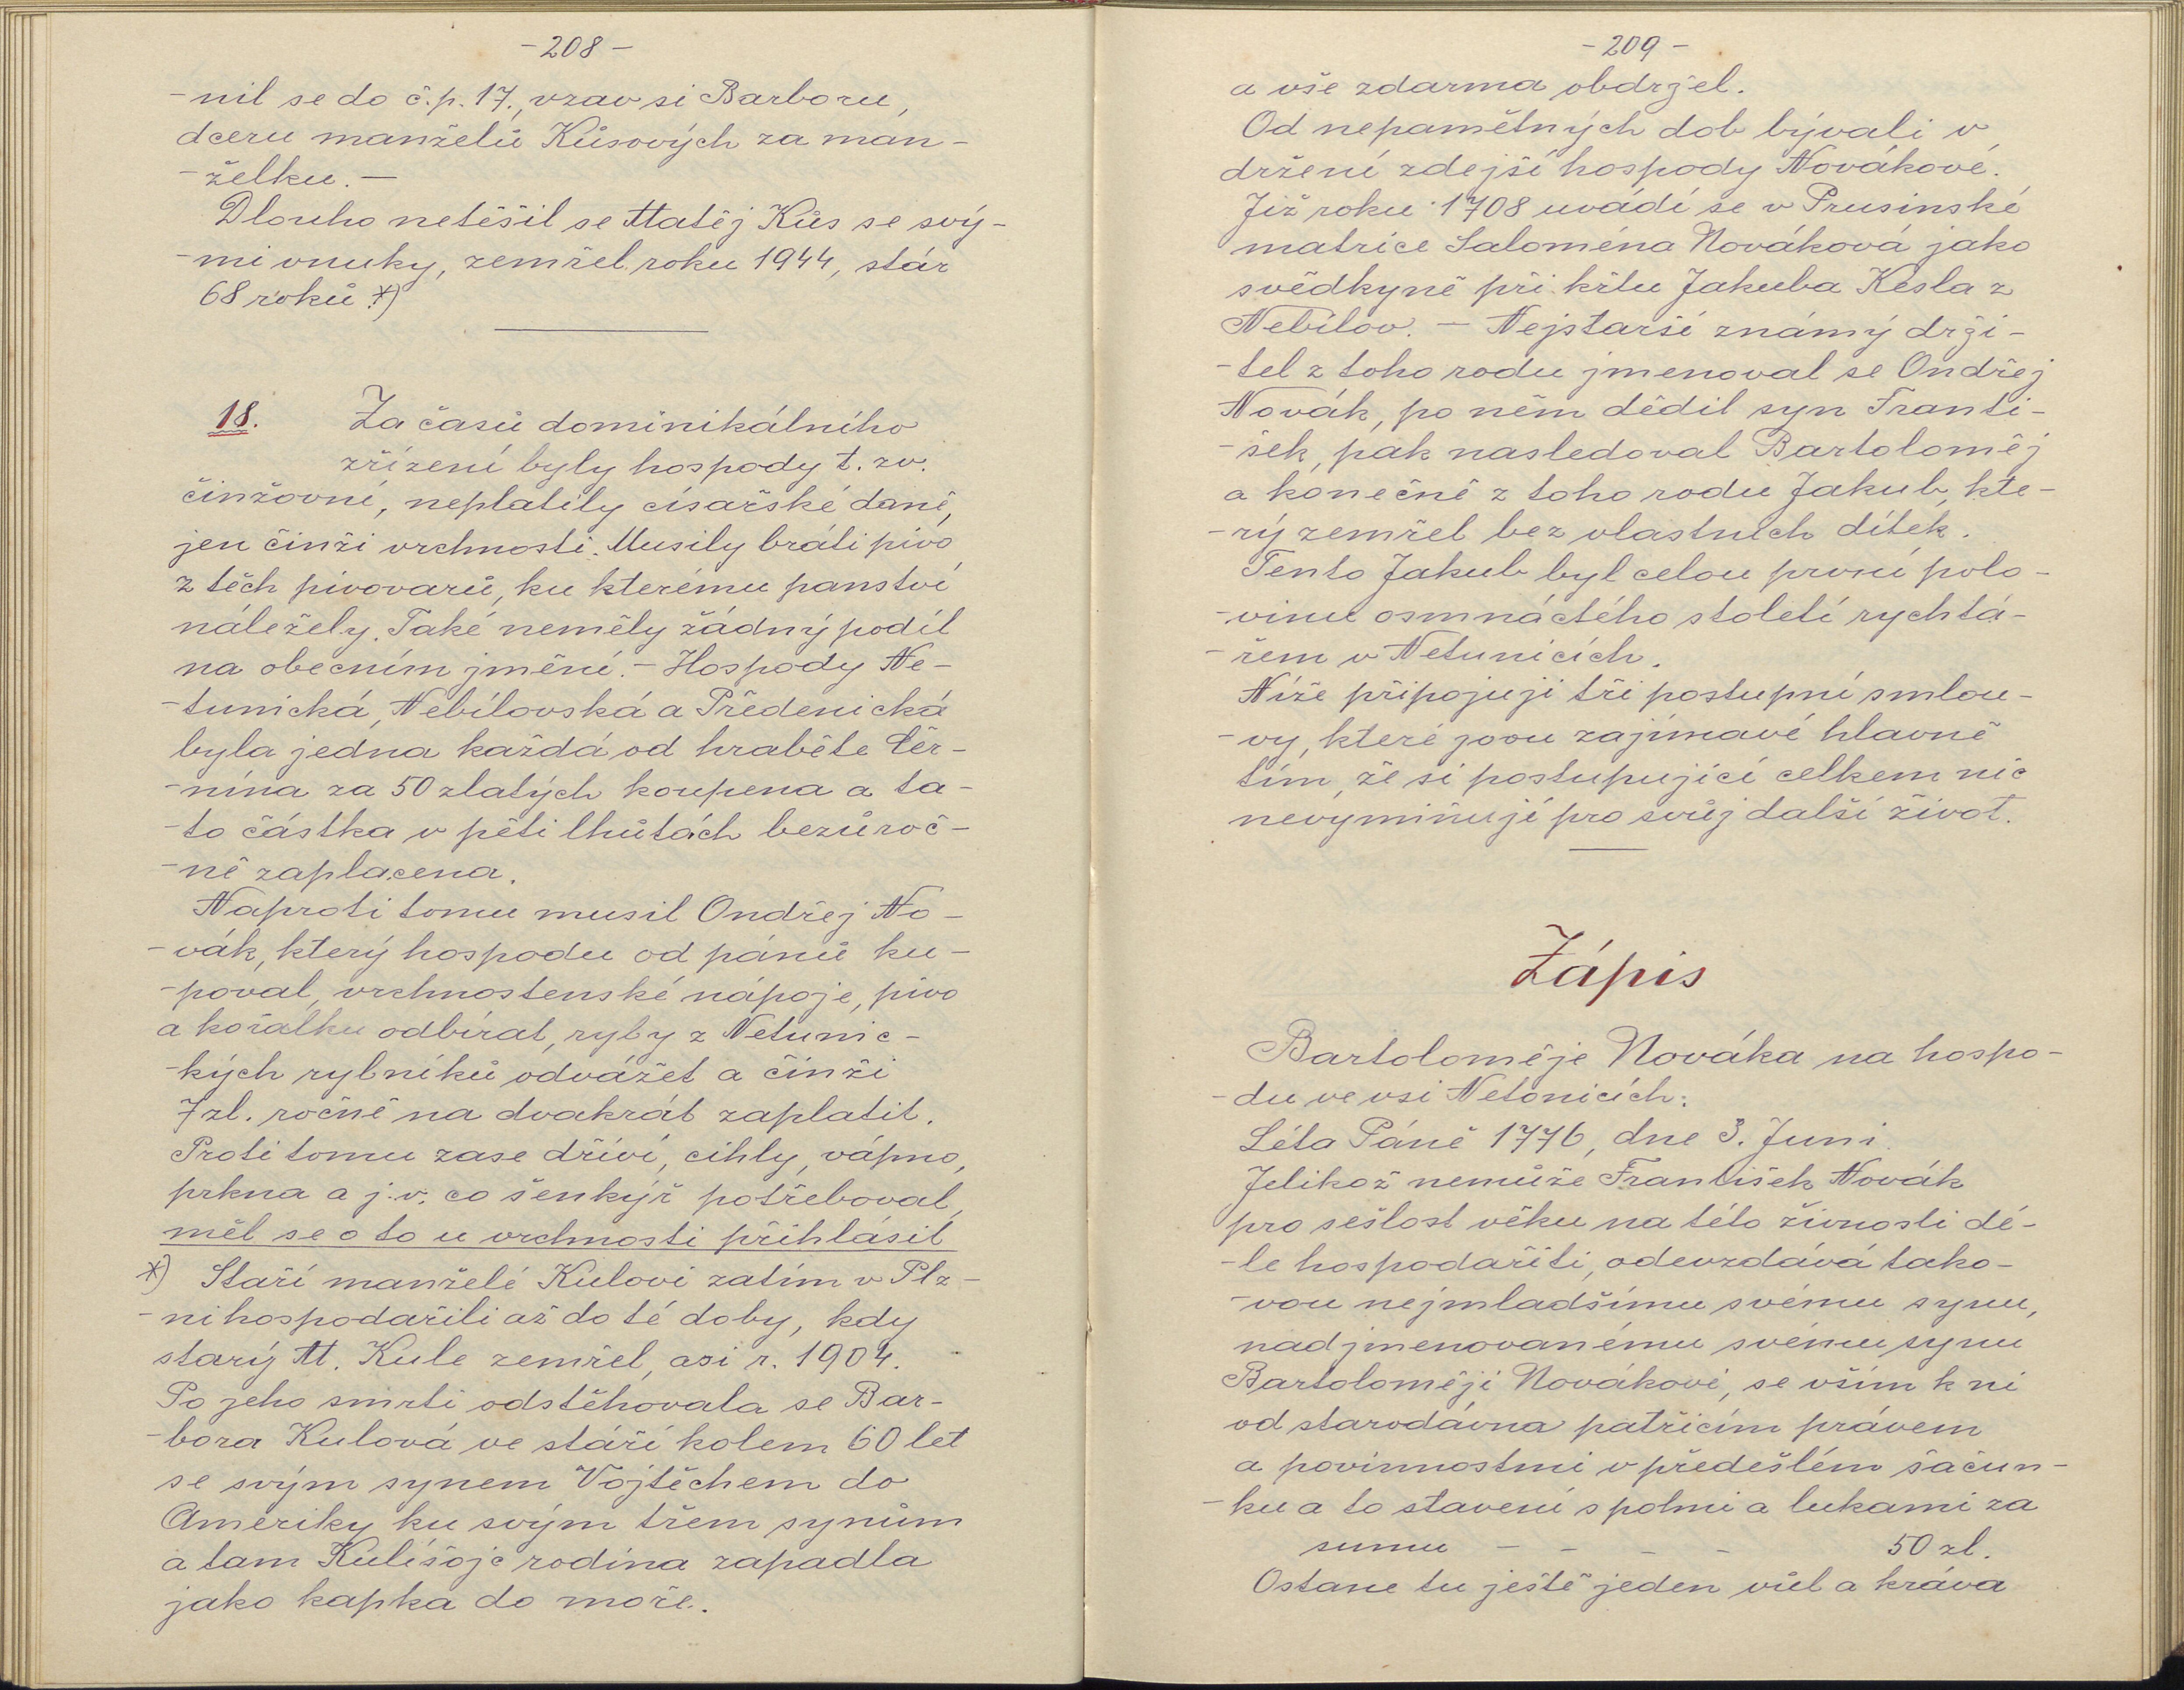 -208-
-nil se do č.p. 17., vzav si Barboru,
dceru manželů Kůsových za man-
-želku. —
Dlouho netěšil se Matěj Kůs se svý-
-mi vnuky, zemřel roku 1944, stár
68 roků.*)
18. Za časů dominikálního
zřízení byly hospody t. zv.
činžovní, neplatily císařské daně,
jen činži vrchnosti. Musily bráti pivo
z těch pivovarů, ku kterému panství
náležely. Také neměly žádný podíl
na obecním jmění. - Hospody Ne-
-tunická, Nebílovská a Předenická
byla jedna každá od hraběte Čer-
-nína za 50 zlatých koupena a ta-
-to částka v pěti lhůtách bezúroč-
-ně zaplacena.
Naproti tomu musil Ondřej No-
-vák, který hospodu od pánů ku-
-poval, vrchnostenské nápoje, pivo
a kořalku odbírat, ryby z Netunic-
-kých rybníků odvážet a činži
7 zl. ročně na dvakrát zaplatit.
Proti tomu zase dříví, cihly, vápno,
prkna a j. v. co šenkýř potřeboval,
měl se o to u vrchnosti přihlásit
*) Staří manželé Kulovi zatím v Plz-
-ni hospodařili až do té doby, kdy
starý M. Kule zemřel, asi r. 1904.
Po jeho smrti odstěhovala se Bar-
-bora Kulová ve stáří kolem 60 let
se svým synem Vojtěchem do
Ameriky ku svým třem synům
a tam Kulišoje rodina zapadla
jako kapka do moře.
-209-
a vše zdarma obdržel.
Od nepamětných dob bývali v
držení zdejší hospody Novákové.
Již roku 1708 uvádí se v Prusinské
matrice Saloména Nováková jako
svědkyně při křtu Jakuba Kesla z
Nebílov. - Nejstarší známý drži-
-tel z toho rodu jmenoval se Ondřej
Novák, po něm dědil syn Franti-
-šek, pak nasledoval Bartoloměj
a konečně z toho rodu Jakub, kte-
-rý zemřel bez vlastních dítek.
Tento Jakub byl celou první polo-
-vinu osmnáctého století rychtá-
-řem v Netunicích.
Níže připojuji tři postupní smlou-
-vy, které jsou zajímavé hlavně
tím, že si postupující celkem nic
nevymiňují pro svůj další život.
Zápis
Bartoloměje Nováka na hospo-
-du ve vsi Netonicích:
Léta Páně 1776, dne 3. Juni
Jelikož nemůže František Novák
pro sešlost věku na této živnosti dé-
-le hospodařiti, odevzdává tako-
-vou nejmladšímu svému synu,
nadjmenovanému svému synu
Bartoloměji Novákovi, se vším k ní
od starodávna patřícím právem
a povinnostmi v předešlém šacun-
-ku a to stavení s polmi a lukami za
sumu - - - - 50 zl.
Ostane tu ještě jeden vůl a kráva